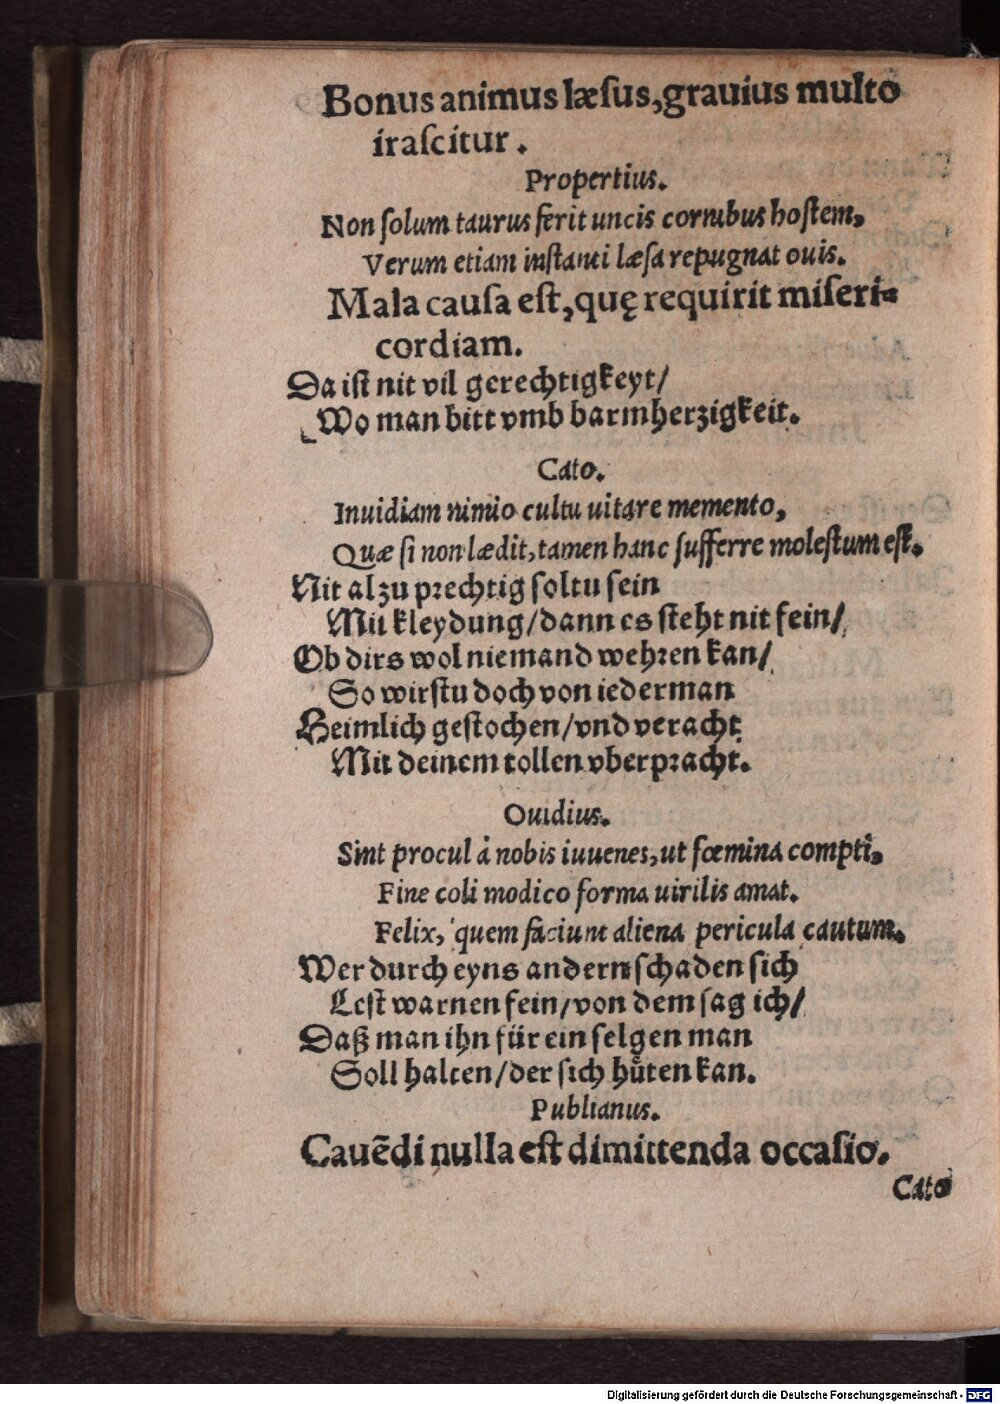 Bonus animus læſus, grauius multo
iraſcitur.
Propertius.
Non ſolum taurus ferit uncis cornibus hoſtem,
Verum etiam inſtanti læſa repugnat ouis.
Mala cauſa eſt, quę requirit miſeri-
cordiam.
Da iſt nit vil gerechtigkeyt/
Wo man bitt vmb barmherzigkeit.
Cato.
Inuidiam nimio cultu uitare memento,
Quæ ſi non lædit, tamen hanc ſufferre moleſtum eſt.
Nit alzu prechtig ſoltu ſein
Mit kleydung/dann es ſteht nit fein/
Ob dirs wol niemand wehren kan/
So wirſtu doch von iederman
Heimlich geſtochen/vnd veracht
Mit deinem tollen vberpracht.
Ouidius.
Sint procul à nobis iuuenes, ut fœmina compti,
Fine coli modico forma uirilis amat.
Felix, quem faciunt aliena pericula cautum.
Wer durch eyns andern ſchaden ſich
Leſt warnen fein/von dem ſag ich/
Daß man ihn für ein ſelgen man
Soll halten/der ſich hüten kan.
Publianus.
Cauēdi nulla eſt dimittenda occaſio.
Cato
Digitalisierung gefördert durch die Deutsche Forschungsgemeinschaft - DFG